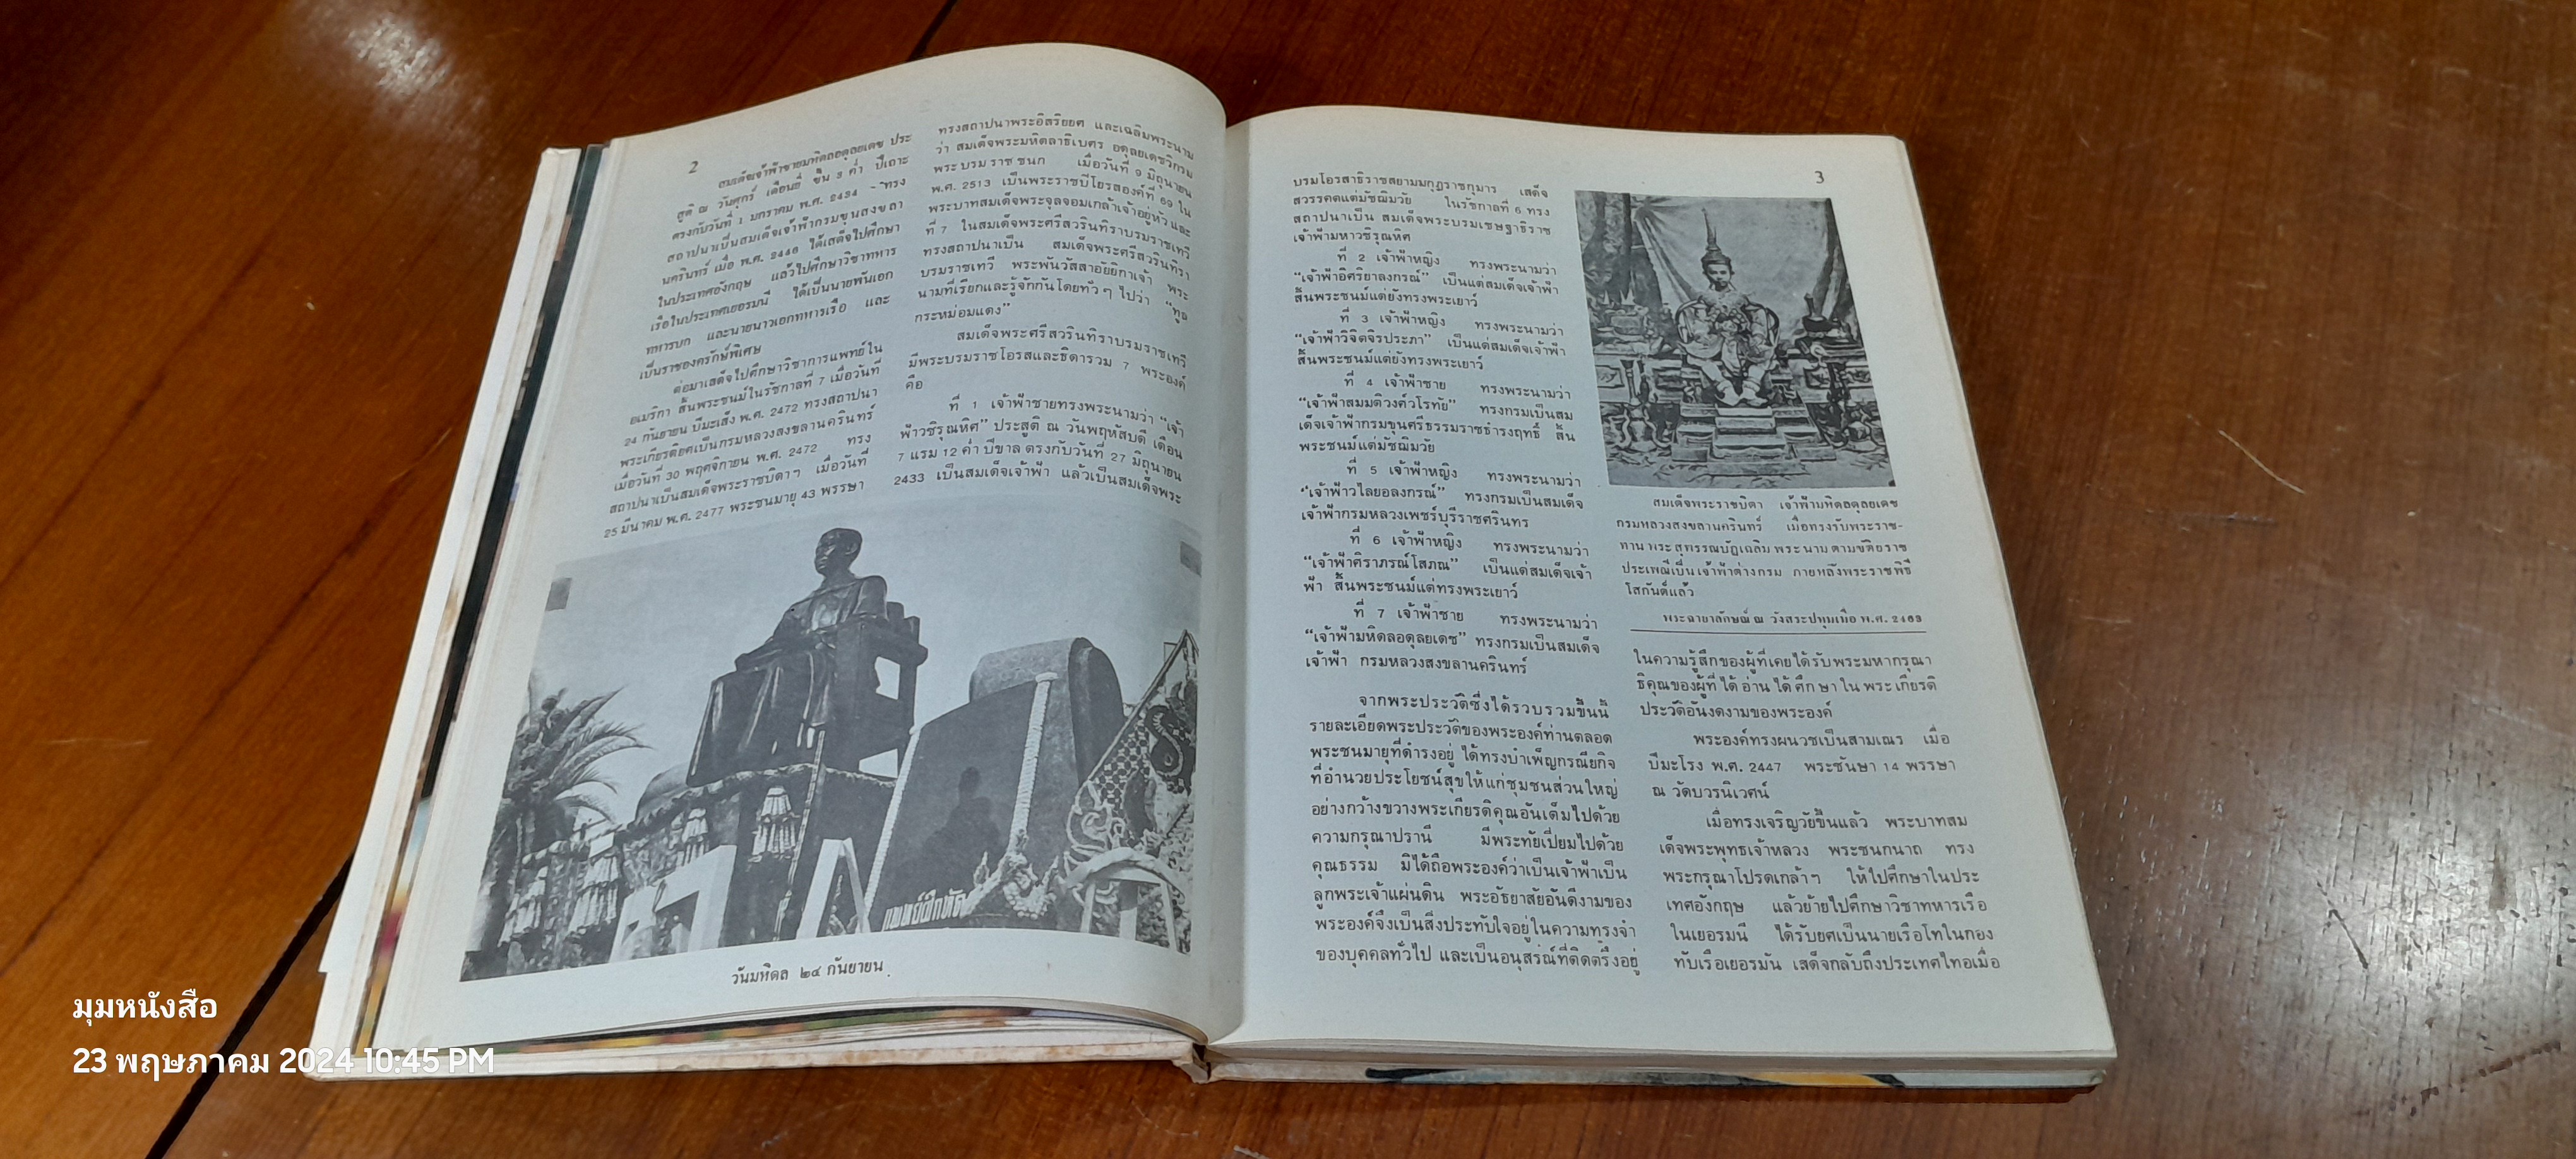 2
สมเด็จเจ้าฟ้าชายมหิดลอดุลยเดช ประ
สูติ ณ วันศุกร์ เดือนยี่ ขึ้น 3 ค่ำ ปีเถาะ
ตรงกับวันที่ 1 มกราคม พ.ศ. 2434 - ทรง
สถาปนาเป็นสมเด็จเจ้าฟ้ากรมขุนสงขลา
นครินทร์ เมื่อ พ.ศ. 2446 ได้เสด็จไปศึกษา
ในประเทศอังกฤษ แล้วไปศึกษาวิชาทหาร
เรือในประเทศเยอรมนี ได้เป็นนายพันเอก
ทหารบก และนายนาวาเอกทหารเรือ และ
เป็นราชองครักษ์พิเศษ
ต่อมาเสด็จไปศึกษาวิชาการแพทย์ใน
อเมริกา สิ้นพระชนม์ในรัชกาลที่ 7 เมื่อวันที่
24 กันยายน ปีมะเส็ง พ.ศ. 2472 ทรงสถาปนา
พระเกียรติยศเป็นกรมหลวงสงขลานครินทร์
เมื่อวันที่ 30 พฤศจิกายน พ.ศ. 2472 ทรง
สถาปนาเป็นสมเด็จพระราชบิดาฯ เมื่อวันที่
25 มีนาคม พ.ศ. 2477 พระชนมายุ 43 พรรษา
ทรงสถาปนาพระอิสริยยศ และเฉลิมพระนาม
ว่า สมเด็จพระมหิตลาธิเบศร อดุลยเดชวิกรม
พระบรมราชชนก เมื่อวันที่ 9 มิถุนายน
พ.ศ. 2513 เป็นพระราชปิโยรสองค์ที่ 69 ใน
พระบาทสมเด็จพระจุลจอมเกล้าเจ้าอยู่หัว และ
ที่ 7 ในสมเด็จพระศรีสวรินทิราบรมราชเทวี
ทรงสถาปนาเป็น สมเด็จพระศรีสวรินทิรา
บรมราชเทวี พระพันวัสสาอัยยิกาเจ้า พระ
นามที่เรียกและรู้จักกันโดยทั่วๆ ไปว่า "ทูล
กระหม่อมแดง"
สมเด็จพระศรีสวรินทิราบรมราชเทวี
มีพระบรมราชโอรสและธิดารวม 7 พระองค์
คือ
ที่ 1 เจ้าฟ้าชายทรงพระนามว่า "เจ้า
ฟ้าวชิรุณหิศ" ประสูติ ณ วันพฤหัสบดี เดือน
7 แรม 12 ค่ำ ปีขาล ตรงกับวันที่ 27 มิถุนายน
2433 เป็นสมเด็จเจ้าฟ้า แล้วเป็นสมเด็จพระ
แพทย์ฝึกหัด
วันมหิดล ๒๔ กันยายน
3
บรมโอรสาธิราชสยามมกุฎราชกุมาร เสด็จ
สวรรคตแต่มัชฌิมวัย ในรัชกาลที่ 6 ทรง
สถาปนาเป็น สมเด็จพระบรมเชษฐาธิราช
เจ้าฟ้ามหาวชิรุณหิศ
ที่ 2 เจ้าฟ้าหญิง ทรงพระนามว่า
"เจ้าฟ้าอิศริยาลงกรณ์" เป็นแต่สมเด็จเจ้าฟ้า
สิ้นพระชนม์แต่ยังทรงพระเยาว์
ที่ 3 เจ้าฟ้าหญิง ทรงพระนามว่า
"เจ้าฟ้าวิจิตจิรประภา" เป็นแต่สมเด็จเจ้าฟ้า
สิ้นพระชนม์แต่ยังทรงพระเยาว์
ที่ 4 เจ้าฟ้าชาย ทรงพระนามว่า
"เจ้าฟ้าสมมติวงศ์วโรทัย" ทรงกรมเป็นสม
เด็จเจ้าฟ้ากรมขุนศรีธรรมราชธำรงฤทธิ์ สิ้น
พระชนม์แต่มัชฌิมวัย
ที่ 5 เจ้าฟ้าหญิง ทรงพระนามว่า
"เจ้าฟ้าวไลยอลงกรณ์" ทรงกรมเป็นสมเด็จ
เจ้าฟ้ากรมหลวงเพชร์บุรีราชศรินทร
ที่ 6 เจ้าฟ้าหญิง ทรงพระนามว่า
"เจ้าฟ้าศิราภรณ์โสภณ" เป็นแต่สมเด็จเจ้า
ฟ้า สิ้นพระชนม์แต่ทรงพระเยาว์
ที่ 7 เจ้าฟ้าชาย ทรงพระนามว่า
"เจ้าฟ้ามหิดลอดุลยเดช" ทรงกรมเป็นสมเด็จ
เจ้าฟ้า กรมหลวงสงขลานครินทร์
จากพระประวัติซึ่งได้รวบรวมขึ้นนี้
รายละเอียดพระประวัติของพระองค์ท่านตลอด
พระชนมายุที่ดำรงอยู่ ได้ทรงบำเพ็ญกรณียกิจ
ที่อำนวยประโยชน์สุขให้แก่ชุมชนส่วนใหญ่
อย่างกว้างขวางพระเกียรติคุณอันเต็มไปด้วย
ความกรุณาปรานี มีพระทัยเปี่ยมไปด้วย
คุณธรรม มิได้ถือพระองค์ว่าเป็นเจ้าฟ้าเป็น
ลูกพระเจ้าแผ่นดิน พระอัธยาสัยอันดีงามของ
พระองค์จึงเป็นสิ่งประทับใจอยู่ในความทรงจำ
ของบุคคลทั่วไป และเป็นอนุสรณ์ที่ติดตรึงอยู่
สมเด็จพระราชบิดา เจ้าฟ้ามหิดลอดุลยเดช
กรมหลวงสงขลานครินทร์ เมื่อทรงรับพระราช-
ทานพระสุพรรณบัฏเฉลิมพระนามตามขัติยราช
ประเพณีเป็นเจ้าฟ้าต่างกรม ภายหลังพระราชพิธี
โสกันต์แล้ว
พระฉายาลักษณ์ ณ วังสระปทุมเมื่อ พ.ศ. 2463
ในความรู้สึกของผู้ที่เคยได้รับพระมหากรุณา
ธิคุณของผู้ที่ได้อ่านได้ศึกษาในพระเกียรติ
ประวัติอันงดงามของพระองค์
พระองค์ทรงผนวชเป็นสามเณร เมื่อ
ปีมะโรง พ.ศ. 2447 พระชันษา 14 พรรษา
ณ วัดบวรนิเวศน์
เมื่อทรงเจริญวัยขึ้นแล้ว พระบาทสม
เด็จพระพุทธเจ้าหลวง พระชนกนาถ ทรง
พระกรุณาโปรดเกล้าฯ ให้ไปศึกษาในประ
เทศอังกฤษ แล้วย้ายไปศึกษาวิชาทหารเรือ
ในเยอรมนี ได้รับยศเป็นนายเรือโทในกอง
ทับเรือเยอรมัน เสด็จกลับถึงประเทศไทยเมื่อ
มุมหนังสือ
23 พฤษภาคม 2024 10:45 PM